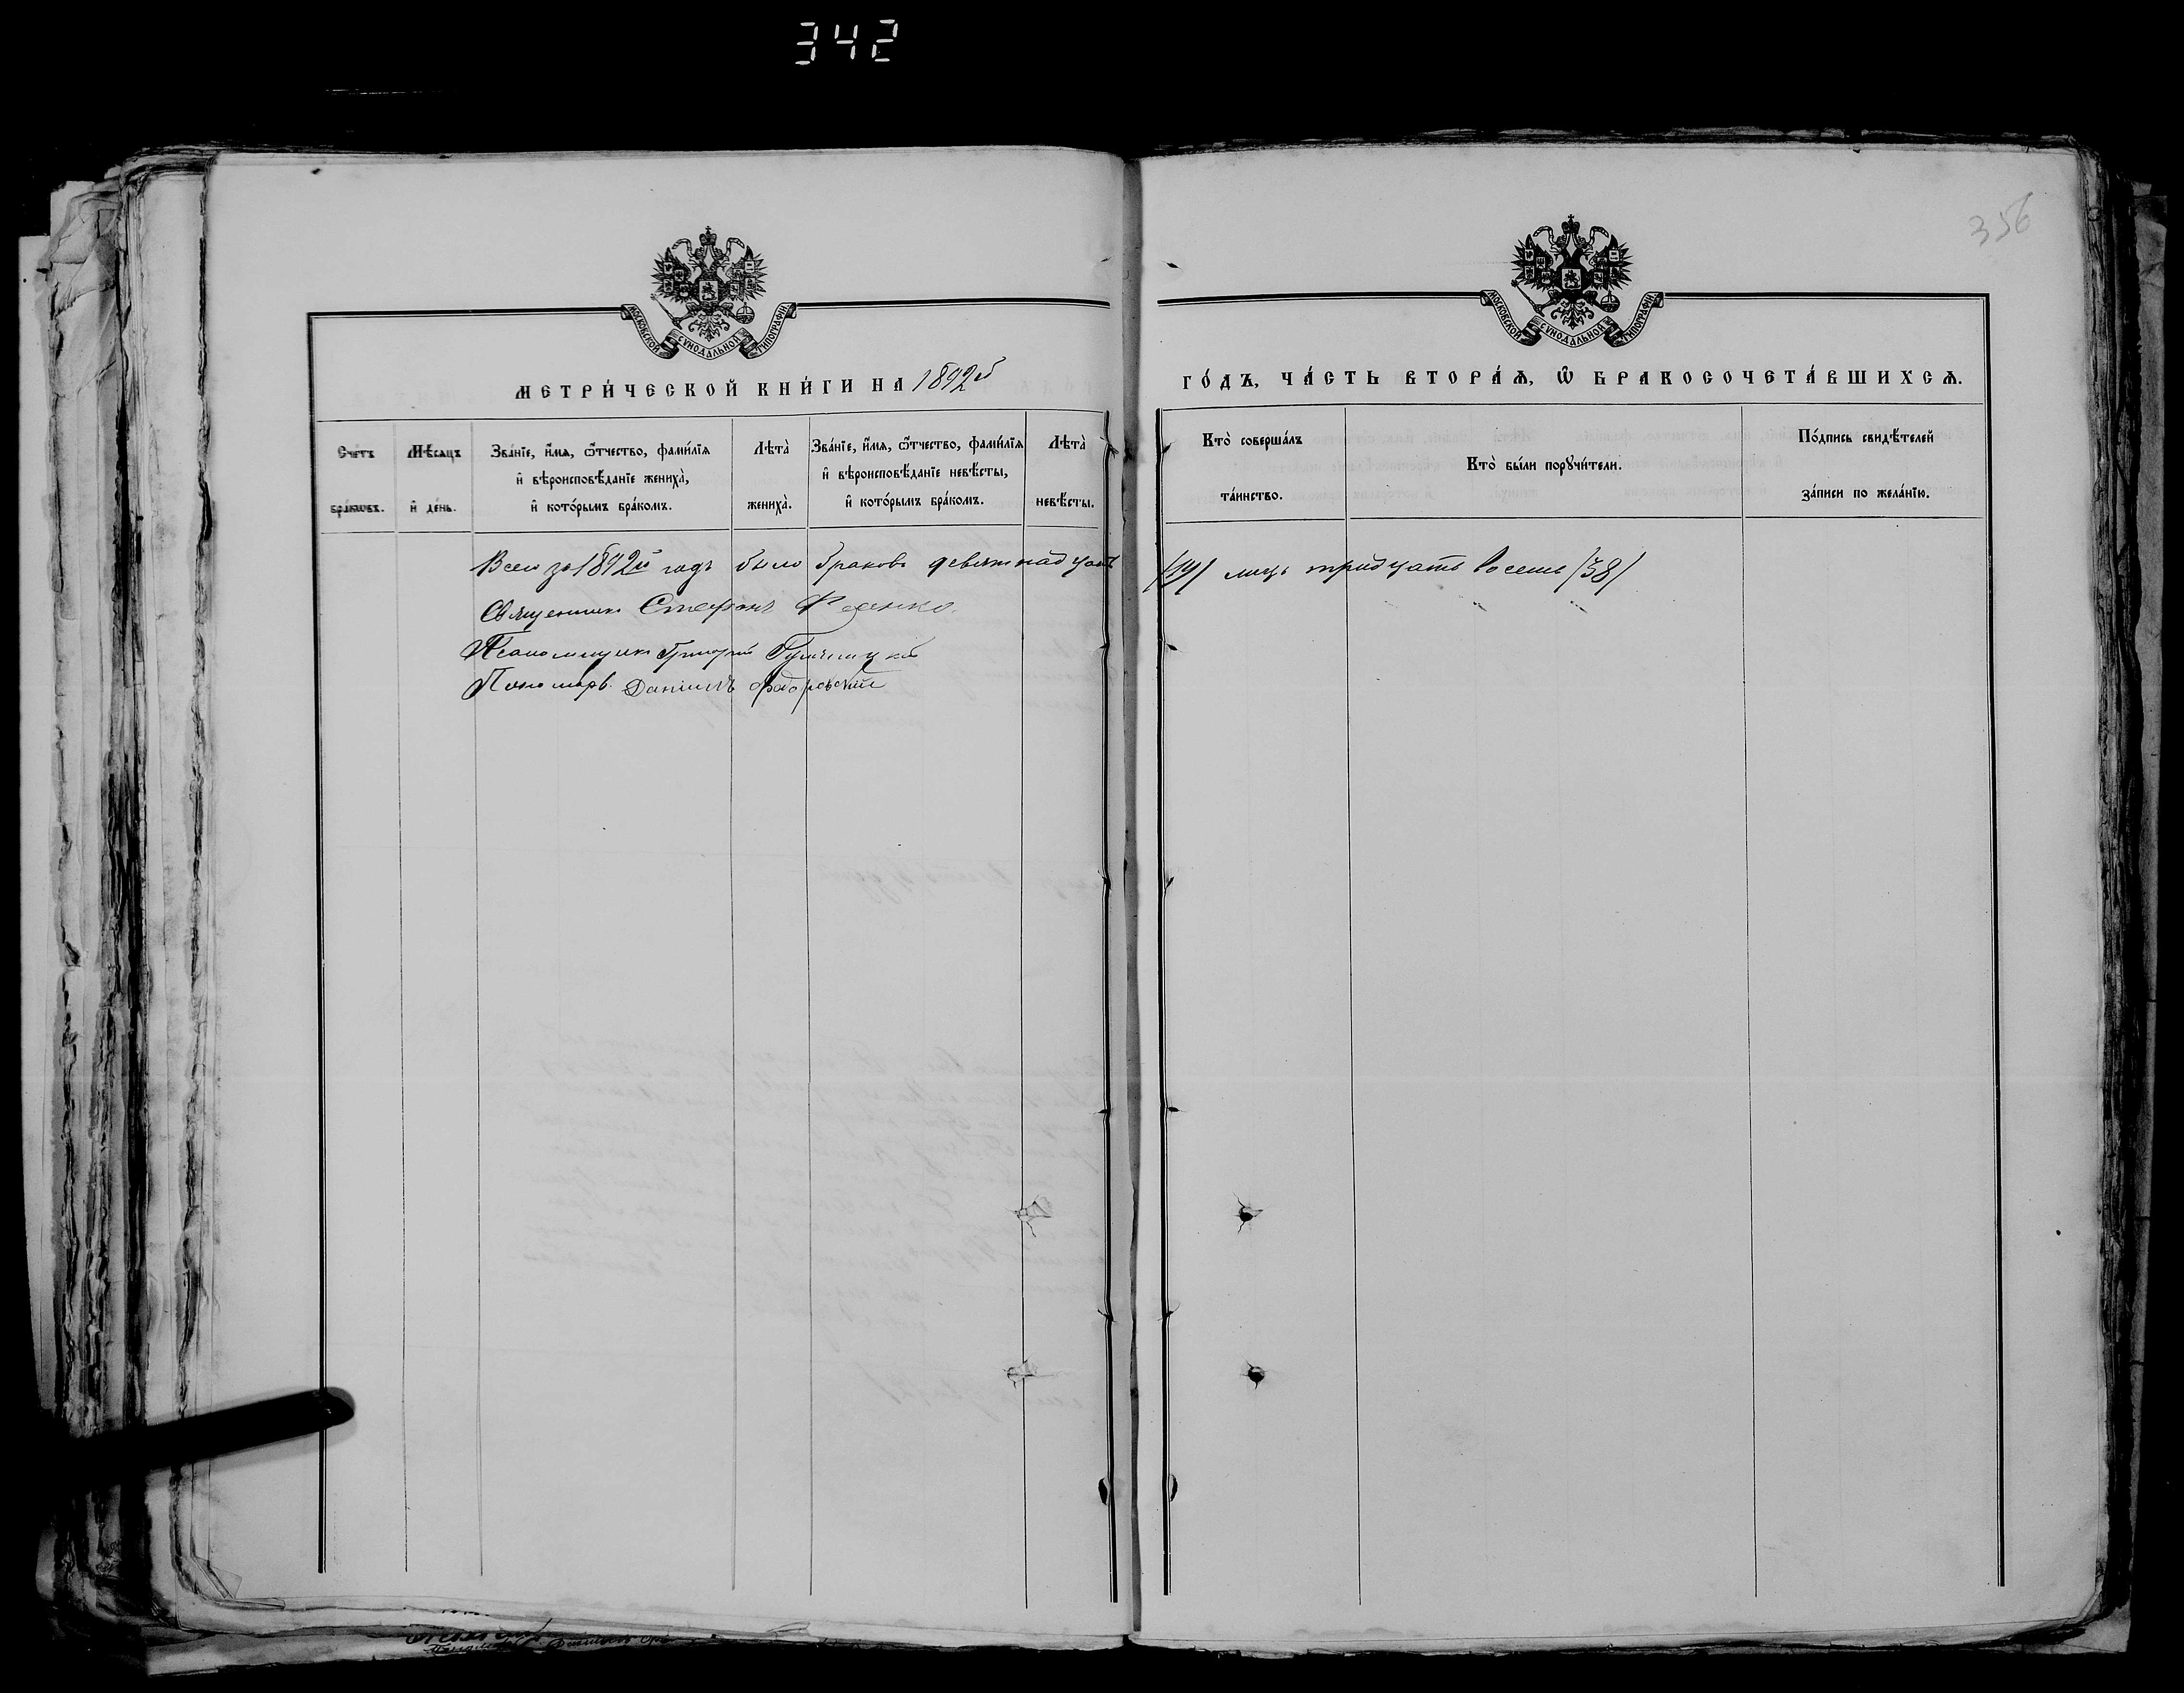 342
356
МОСКОВСКОЙ СѴНОДАЛЬНОЙ ТИПОГРАФІИ
МОСКОВСКОЙ СѴНОДАЛЬНОЙ ТИПОГРАФІИ
МЕТРИ́ЧЕСКОЙ КНИ́ГИ НА 1892й
ГО́ДЪ, ЧА́СТЬ ВТОРА́Ѧ, Ѡ БРАКОСОЧЕТА́ВШИХСѦ.
Сче́тъ бра́ковъ.
Мѣ́сяцъ и де́нь.
Зва́нїе, и́мѧ, ѻ҆́тчество, фами́лїѧ
и҆ вѣроисповѣ́данїе жениха̀,
и҆ кото́рымъ бра́комъ.
Лѣта̀ жениха̀.
Зва́нїе, и́мѧ, ѻ҆́тчество, фами́лїѧ
и҆ вѣроисповѣ́данїе невѣ́сты,
и҆ кото́рымъ бра́комъ.
Лѣта̀ невѣ́сты.
Кто̀ соверша́лъ та́инство.
Кто̀ бы́ли порꙋчи́тели.
По́дпись свидѣ́телей
за́писи по жела́нїю.
Всего за 1892й годъ было браковъ девятнадцать /19/ лицъ тридцать восемь /38/
Священникъ Стефанъ
Псаломщикъ Григорій
Пономарь Даніилъ